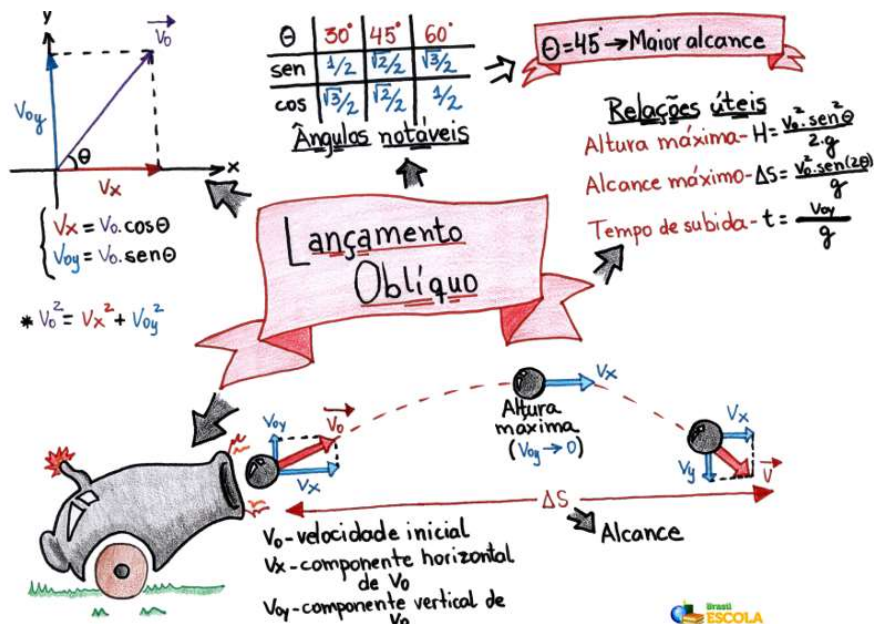 y
V₀
V₀y
θ
x
Vx
Vx = V₀.cosθ
V₀y = V₀.senθ
* V₀² = Vx² + V₀y²
θ 30° 45° 60°
sen 1/2 √2/2 √3/2
cos √3/2 √2/2 1/2
Ângulos notáveis
θ=45° → Maior alcance
Relações úteis
Altura máxima - H = V₀².sen²θ / 2.g
Alcance máximo - ΔS = V₀².sen(2θ) / g
Tempo de subida - t = V₀y / g
Lançamento
Oblíquo
V₀y
V₀
Vx
Vx
Altura
maxima
(V₀y → 0)
Vx
Vy
V
ΔS
Alcance
V₀-velocidade inicial
Vx-componente horizontal
de V₀
V₀y-componente vertical de
V₀
Brasil
ESCOLA